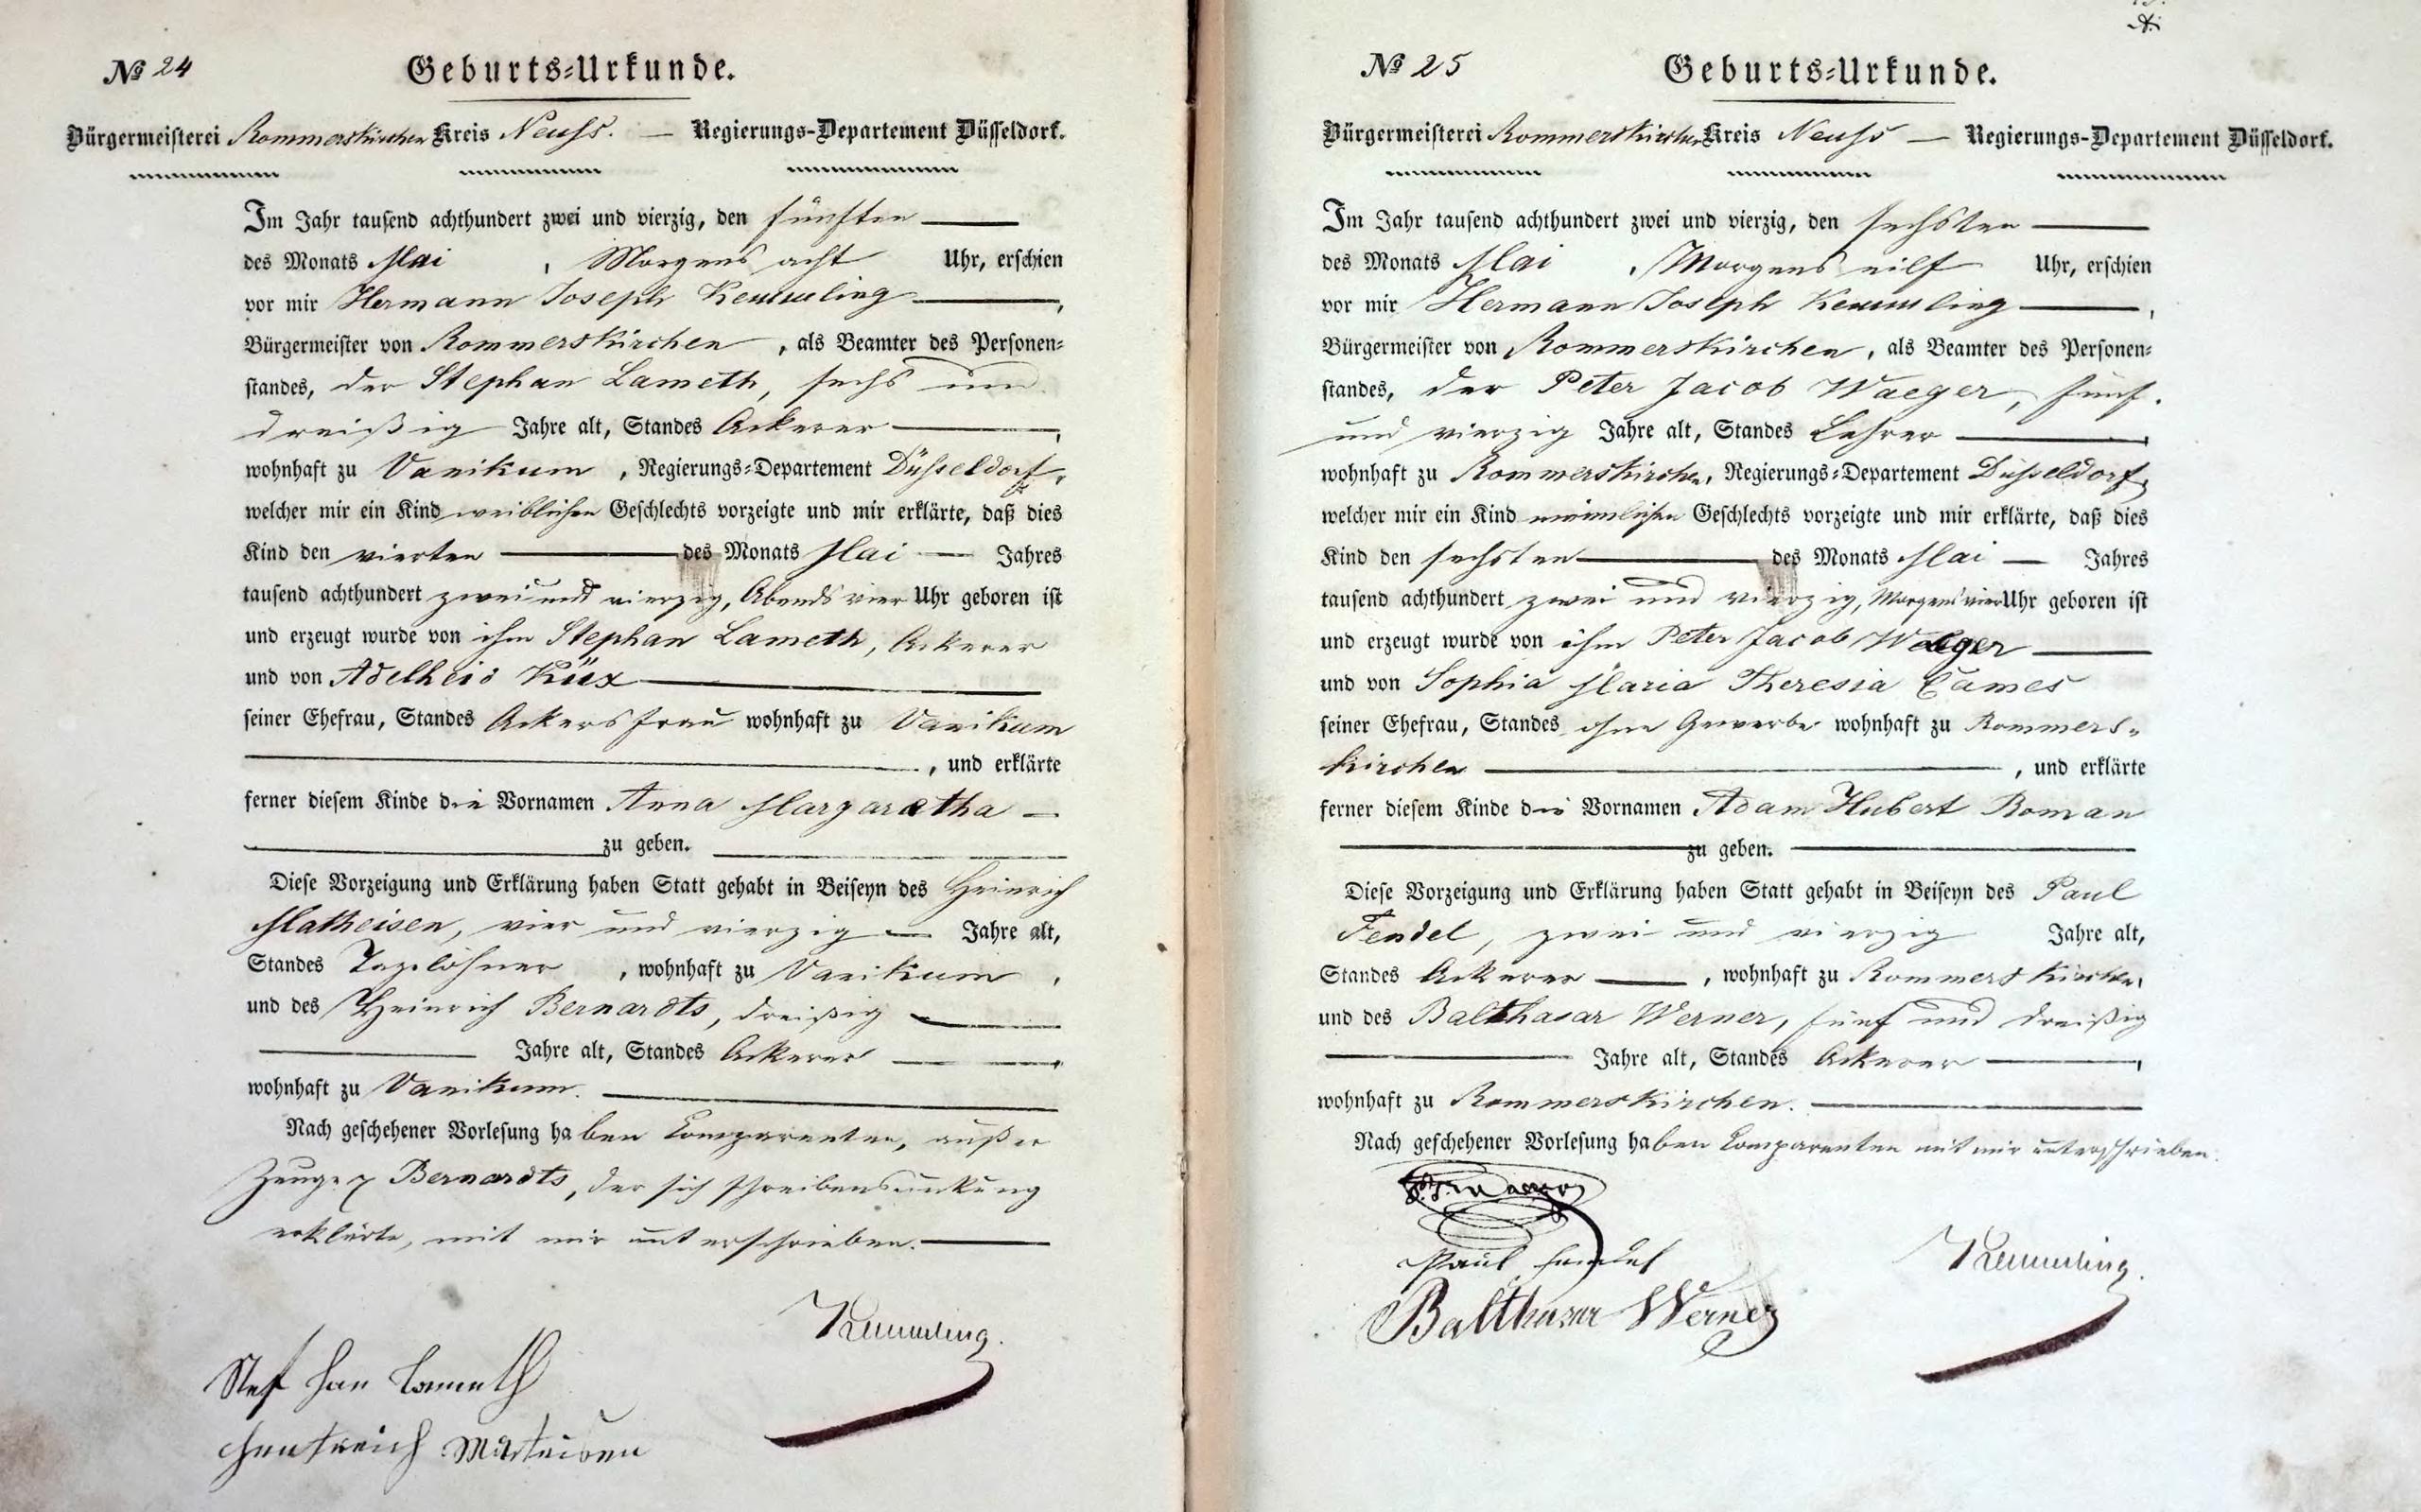 № 24
Geburts-Urkunde.
Bürgermeisterei Rommerskirchen Kreis Neuss. — Regierungs-Departement Düsseldorf.
Im Jahr tausend achthundert zwei und vierzig, den fünften
des Monats Mai , Morgens acht Uhr, erschien
vor mir Hermann Joseph Kemmling ,
Bürgermeister von Rommerskirchen , als Beamter des Personen-
standes, der Stephan Lameth, sechs und
dreißig Jahre alt, Standes Ackerer ,
wohnhaft zu Vanikum , Regierungs-Departement Düsseldorf,
welcher mir ein Kind weiblichen Geschlechts vorzeigte und mir erklärte, daß dies
Kind den vierten des Monats Mai — Jahres
tausend achthundert zwei und vierzig, Abends vier Uhr geboren ist
und erzeugt wurde von ihm Stephan Lameth, Ackerer
und von Adelheid Küx
seiner Ehefrau, Standes Ackersfrau wohnhaft zu Vanikum
, und erklärte
ferner diesem Kinde die Vornamen Anna Margaretha —
zu geben.
Diese Vorzeigung und Erklärung haben Statt gehabt in Beiseyn des Heinrich
Matheisen, vier und vierzig — Jahre alt,
Standes Tagelöhner , wohnhaft zu Vanikum ,
und des Heinrich Bernardts, dreißig
Jahre alt, Standes Ackerer ,
wohnhaft zu Vanikum.
Nach geschehener Vorlesung haben Comparenten, außer
Zeuge Bernardts, der sich schreibensunkung
erklärte, mit mir unterschrieben.
Kemmling.
Stefhan Lameth
Hentreich Matheisen
№ 25
Geburts-Urkunde.
Bürgermeisterei Rommerskirchen Kreis Neuss — Regierungs-Departement Düsseldorf.
Im Jahr tausend achthundert zwei und vierzig, den sechsten
des Monats Mai , Morgens eilf Uhr, erschien
vor mir Hermann Joseph Kemmling ,
Bürgermeister von Rommerskirchen , als Beamter des Personen-
standes, der Peter Jacob Waeger, fünf
und vierzig Jahre alt, Standes Lehrer ,
wohnhaft zu Rommerskirchen, Regierungs-Departement Düsseldorf,
welcher mir ein Kind männlichen Geschlechts vorzeigte und mir erklärte, daß dies
Kind den sechsten des Monats Mai — Jahres
tausend achthundert zwei und vierzig, Morgens vier Uhr geboren ist
und erzeugt wurde von ihm Peter Jacob Waeger
und von Sophia Maria Theresia Cames
seiner Ehefrau, Standes ohne Gewerbe wohnhaft zu Rommers-
kirchen , und erklärte
ferner diesem Kinde die Vornamen Adam Hubert Roman
zu geben.
Diese Vorzeigung und Erklärung haben Statt gehabt in Beiseyn des Paul
Fendel, zwei und vierzig Jahre alt,
Standes Ackerer , wohnhaft zu Rommerskirchen,
und des Balthasar Werner, fünf und dreißig
Jahre alt, Standes Ackerer ,
wohnhaft zu Rommerskirchen.
Nach geschehener Vorlesung haben Comparenten mit mir unterschrieben.
Paul Fendel
Kemmling.
Balthasar Werner